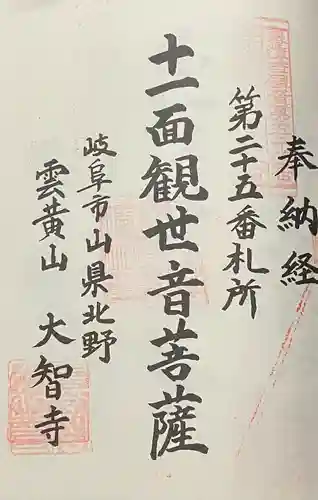 奉納経
第二十五番札所
十一面観世音菩薩
岐阜市山県北野
雲黄山 大智寺